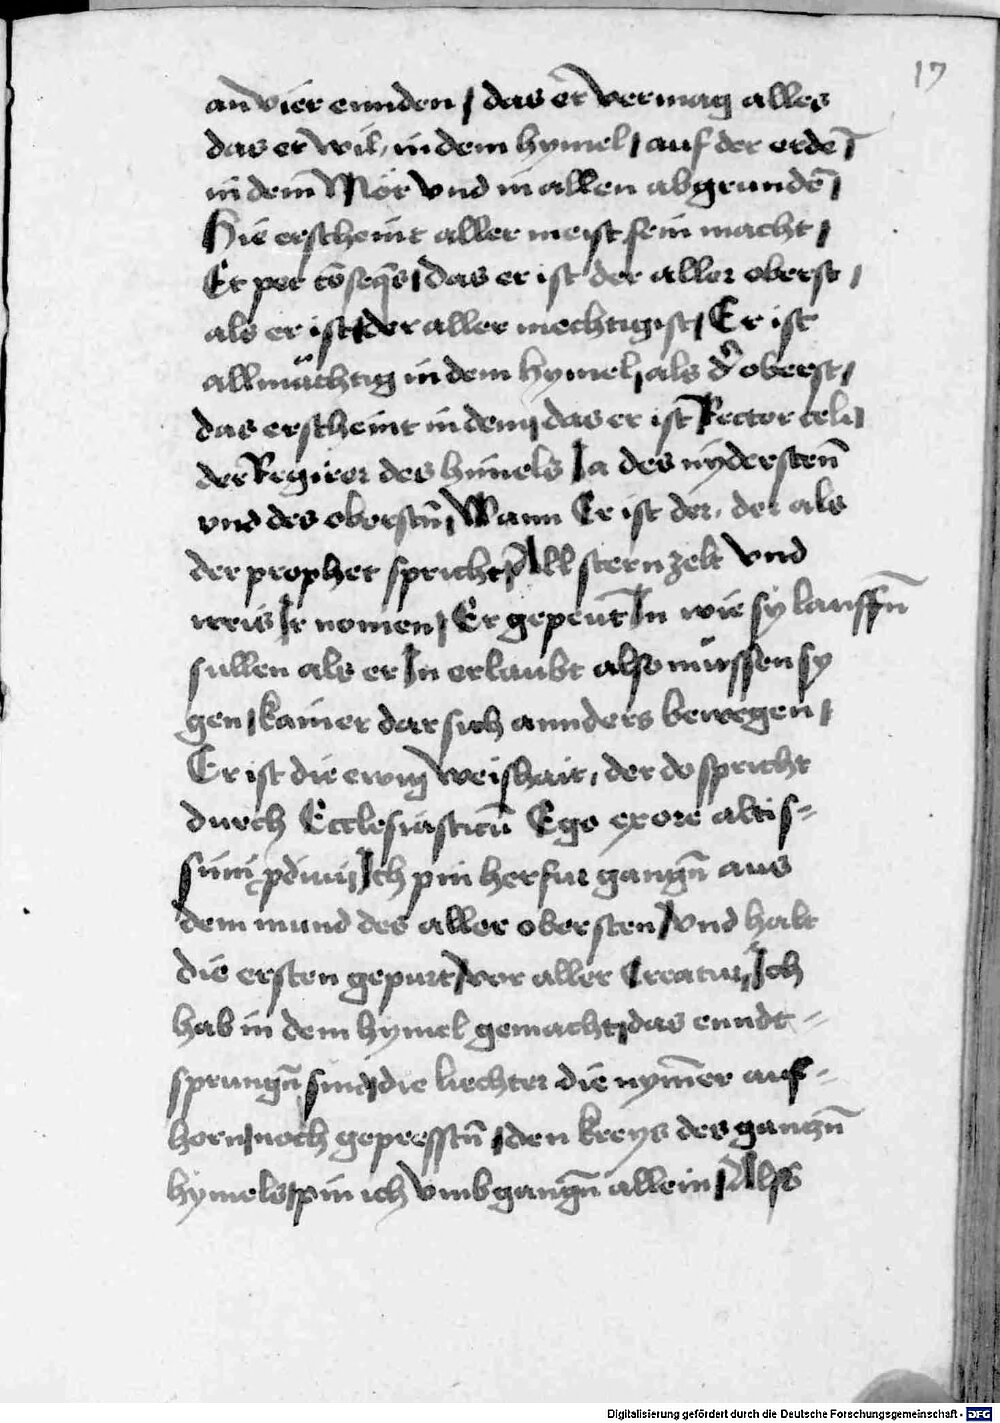 17
an vier ennden / das er vermag alles
das er wil, in dem hymel / auf der erdē /
in dem Mör vnd in allen abgrundē /
Hie erscheint aller meist sein macht /
Et per cōseqēs / das er ist der aller oberst /
als er ist der aller mechtigist / Er ist
allmächtig in dem hymel, als dʳ oberst /
das erscheint in dem / das er ist Rector celi /
der Regirer des himels Ja des nyderstenn̄
vnd des oberstn̄ / Wann Er ist der, der als
der prophet spricht / All stern zelt vnd
weis Ir nomen / Er gepeut In wie sy lauffn̄
sullen als er In erlaubt also müssen sy
gen / kainer dar sich annders bewegen /
Er ist die ewig weishait, der do spricht
durch Ecclesiasticū Ego ex ore altis=
simi pdiui / Ich pin herfur gangn̄ aus
dem mund des aller obersten / vnd halt
die ersten gepurt / vor aller Creatur, Ich
hab in dem hymel gemacht / das enndt=
sprungn̄ sind die liechter die nym̄er auf=
horn / noch gepresstn̄ / den kreys des gantzn̄
hymels / pin ich vmbgangn̄ allein / Alss
Digitalisierung gefördert durch die Deutsche Forschungsgemeinschaft - DFG